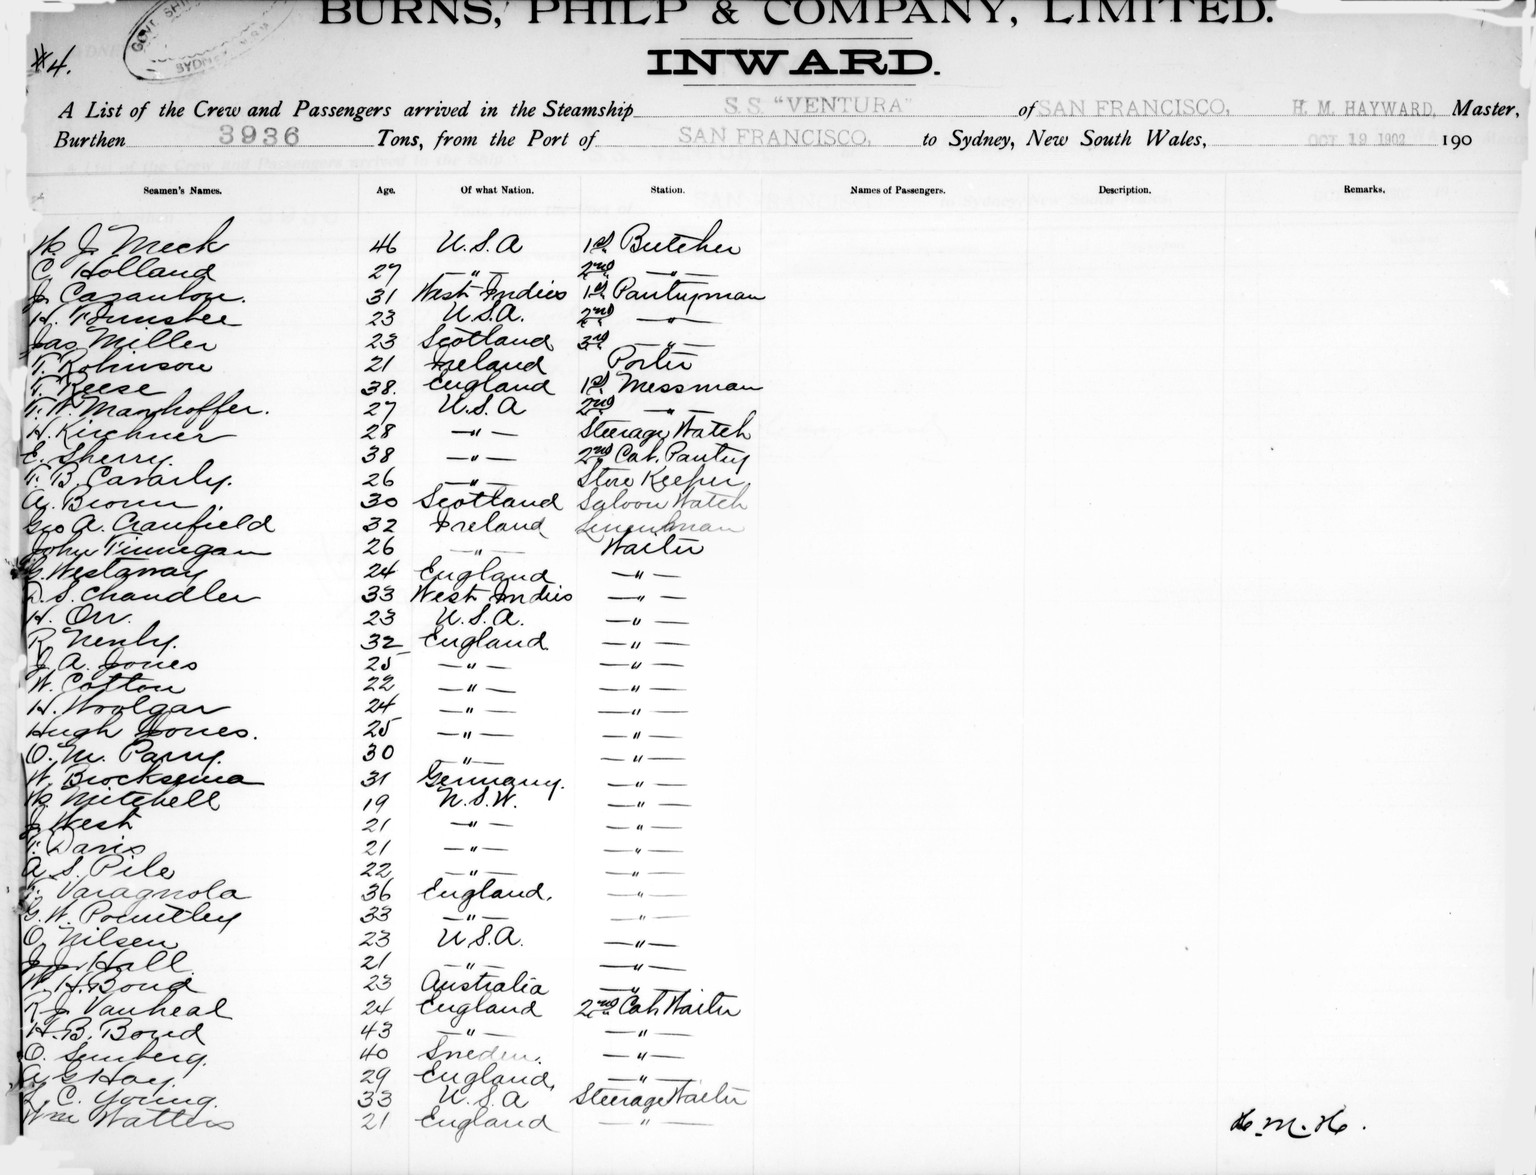 BURNS, PHILP & COMPANY, LIMITED.
#4.
INWARD.
A List of the Crew and Passengers arrived in the Steamship S.S. "VENTURA" of SAN FRANCISCO, H. M. HAYWARD, Master,
Burthen 3936 Tons, from the Port of SAN FRANCISCO, to Sydney, New South Wales, OCT 12 1902 190
Seamen's Names. Age. Of what Nation. Station. Names of Passengers. Description. Remarks.
J. Meek 46 U.S.A 1st Butcher
C Holland 27 —"— 2nd —"—
J. Casanbon. 31 West Indies 1st Pantryman
H. 23 U.S.A. 2nd —"—
Jas Miller 23 Scotland 3rd —"—
T. Robinson 21 Ireland Porter
T. Reese 38. England 1st Messman
F. W. Manhoffer. 27 U.S.A 2nd —"—
H. Kirchner 28 —"— Steerage Watch
E. Sherry. 38 —"— 2nd Cab. Pantry
F. B. Cavarly. 26 —"— Store Keeper
A. Brown 30 Scotland Saloon Watch
Geo A. Cranfield 32 Ireland Linenman
John Finnegan 26 —"— Waiter
G. Westaway 24 England —"—
D. S. Chandler 33 West Indies —"—
H. Orr. 23 U.S.A. —"—
R Nenby. 32 England —"—
J. A. Jones 25 —"— —"—
W. Cotton 22 —"— —"—
H. Woolgar 24 —"— —"—
Hugh Jones. 25 —"— —"—
O. M. Parry. 30 —"— —"—
W. Brocksema 31 Germany. —"—
Mitchell 19 N.S.W. —"—
J. West 21 —"— —"—
T. Davis 21 —"— —"—
A. S. Pile 22 —"— —"—
F. Varagnola 36 England. —"—
G. W. Pountley 33 —"— —"—
O. Nilsen 23 U.S.A. —"—
J. J. Hall 21 —"— —"—
W. H. Bond 23 Australia —"—
R. J. Vanheal 24 England 2nd Cab. Waiter
H. B. Bond 43 —"— —"—
O. Sunberg. 40 Sweden. —"—
A. G. Hay. 29 England. —"—
L. C. Young. 33 U.S.A Steerage Waiter
Wm Watters 21 England —"—
H. M. H.